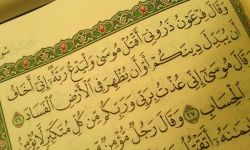 وَقَالَ فِرْعَوْنُ ذَرُونِي أَقْتُلْ مُوسَىٰ وَلْيَدْعُ رَبَّهُ إِنِّي أَخَافُ
أَن يُبَدِّلَ دِينَكُمْ أَوْ أَن يُظْهِرَ فِي الْأَرْضِ الْفَسَادَ ٢٦
وَقَالَ مُوسَىٰ إِنِّي عُذْتُ بِرَبِّي وَرَبِّكُم مِّن كُلِّ مُتَكَبِّرٍ لَّا يُؤْمِنُ
الْحِسَابِ ٢٧ وَقَالَ رَجُلٌ مُّؤْمِنٌ